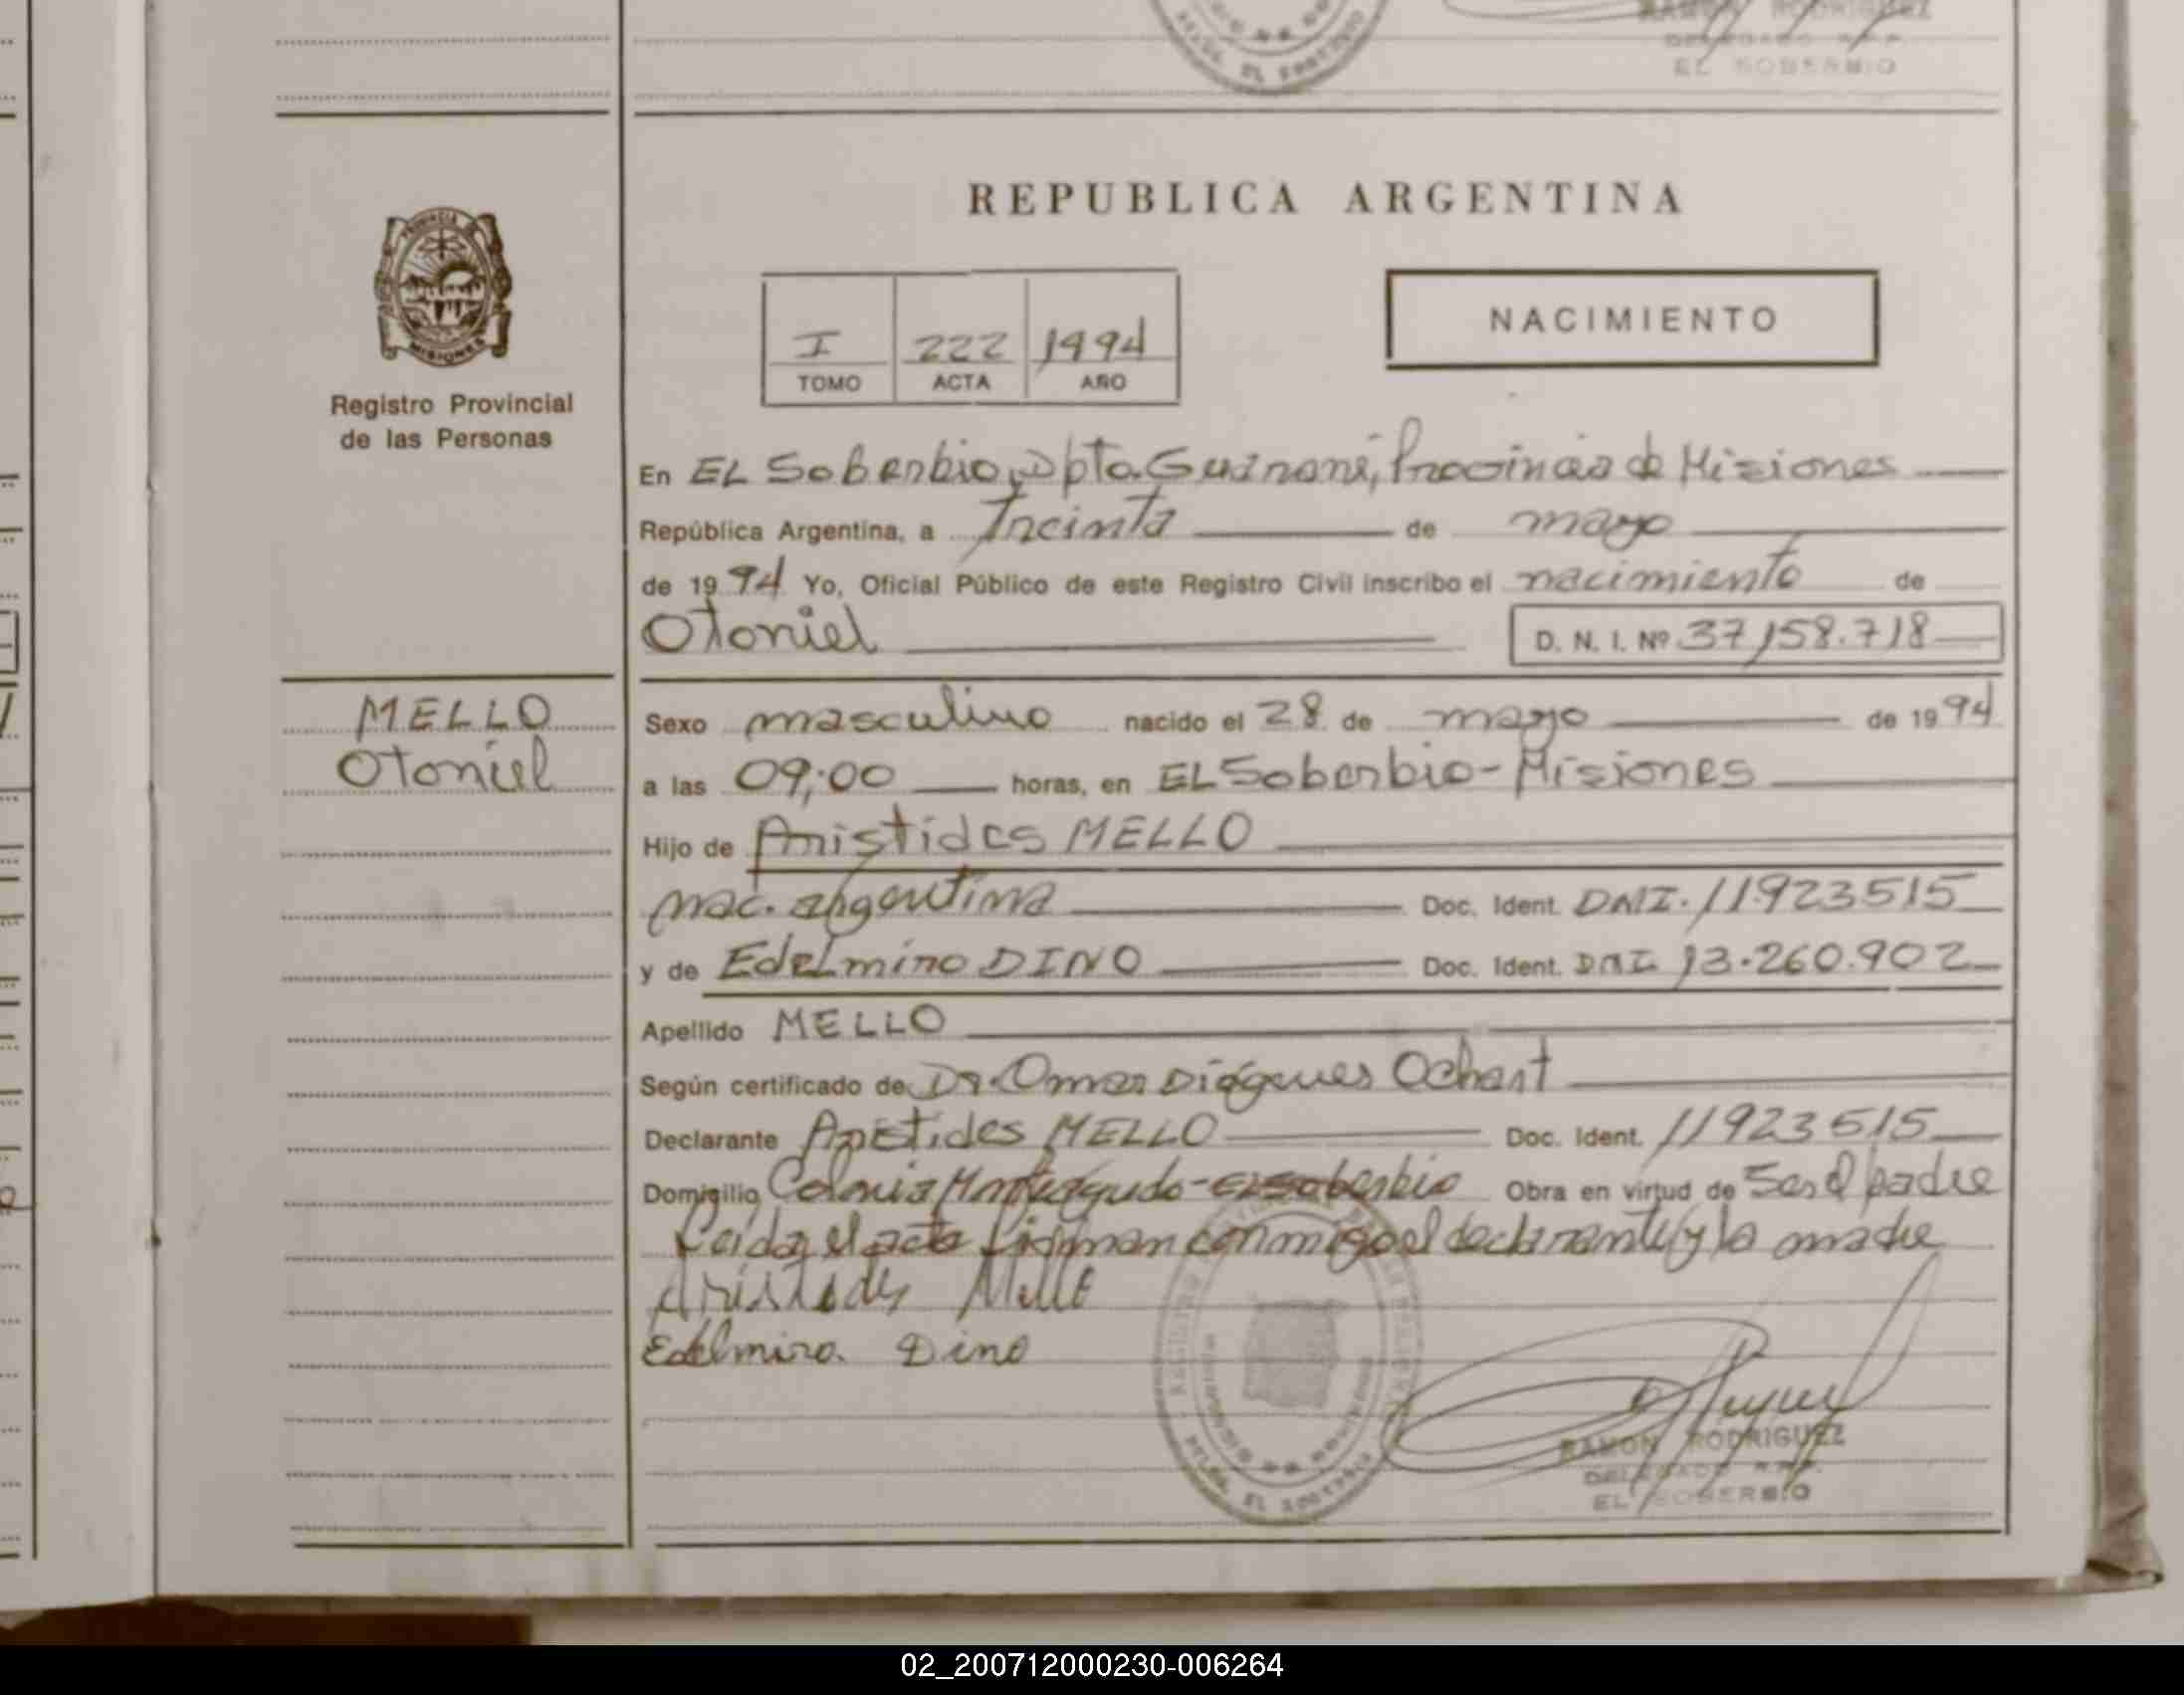 RAMON RODRIGUEZ
DELEGADO R.P.P.
EL SOBERBIO
DELEG. EL SOBERBIO
REPUBLICA ARGENTINA
PROVINCIA DE
MISIONES
Registro Provincial
de las Personas
I 222 1994
TOMO ACTA AÑO
NACIMIENTO
En EL Soberbio, Dpto. Guaraní, Provincia de Misiones
República Argentina, a Treinta de mayo
de 1994 Yo, Oficial Público de este Registro Civil inscribo el nacimiento de
Otoniel D. N. I. Nº 37158.718
MELLO
Otoniel
Sexo masculino nacido el 28 de mayo de 1994
a las 09;00 horas, en EL Soberbio - Misiones
Hijo de Aristides MELLO
nac. argentina Doc. Ident. DNI. 11923515
y de Edelmira DINO Doc. Ident. DNI 13.260.902
Apellido MELLO
Según certificado de Dr. Omar Diógenes Ochart
Declarante Aristides MELLO Doc. Ident. 11923515
Domicilio Colonia Monteagudo - El Soberbio Obra en virtud de Ser el padre
Leida el acta firman conmigo el declarante y la madre
Aristides Mello
Edelmira Dino
RAMON RODRIGUEZ
DELEGADO R.P.P.
EL SOBERBIO
DELEG. EL SOBERBIO
02_200712000230-006264